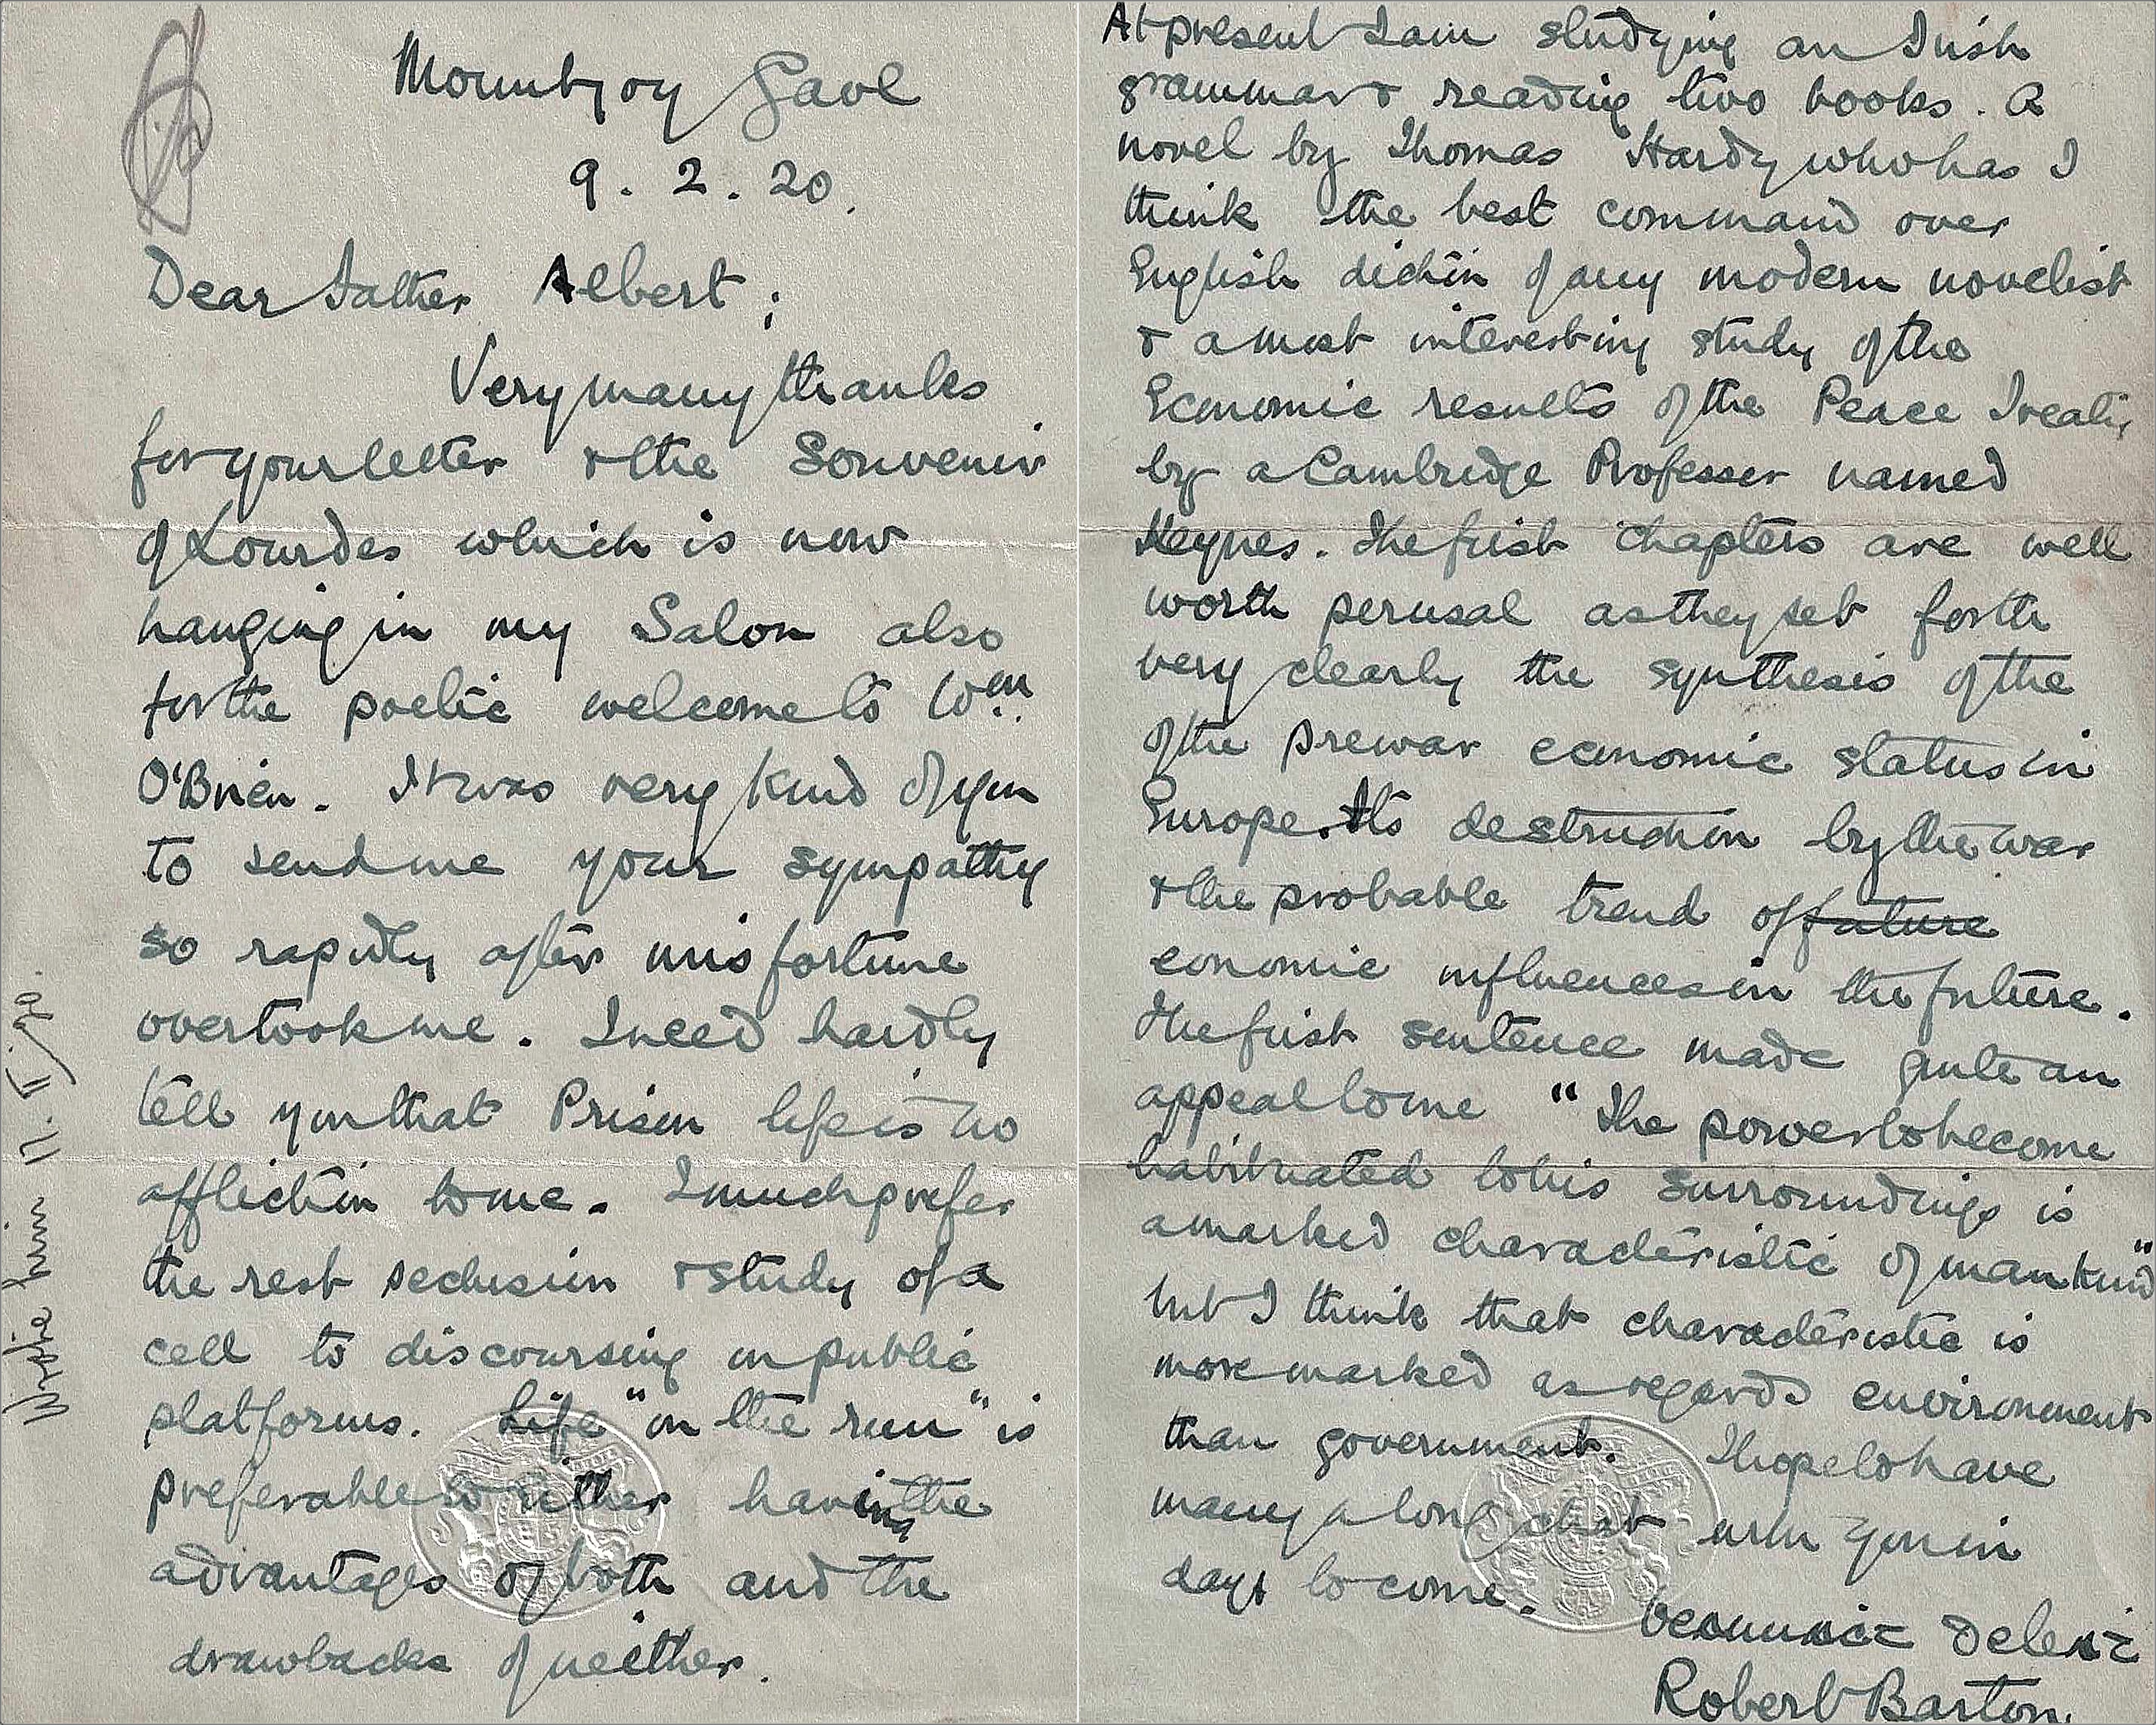 Mountjoy Gaol
9.2.20.
Dear Father Albert;
Very many thanks
for your letter & the Souvenir
of Lourdes which is now
hanging in my Salon also
for the poetic welcome to Wm.
O'Brien. It was very kind of you
to send me your sympathy
so rapidly after misfortune
overtook me. I need hardly
tell you that Prison life is no
affliction to me. I much prefer
the rest seclusion & study of a
cell to discoursing on public
platforms. Life "on the run" is
preferable to either having the
advantages of both and the
drawbacks of neither.
Wrote him 17. II. 20.
At present I am studying an Irish
grammar & reading two books. A
novel by Thomas Hardy who has I
think the best command over
English diction of any modern novelist
& a most interesting study of the
Economic results of the Peace Treaty
by a Cambridge Professer named
Keynes. The first chapters are well
worth perusal as they set forth
very clearly the synthesis of the
of the prewar economic status in
Europe. Its destruction by the war
& the probable trend of future
economic influences in the future.
The first sentence made quite an
appeal to me "The power to become
habituated to his surroundings is
a marked characteristic of mankind"
but I think that characteristic is
more marked as regards environment
than government. I hope to have
many a long chat with you in
days to come.
Robert Barton.